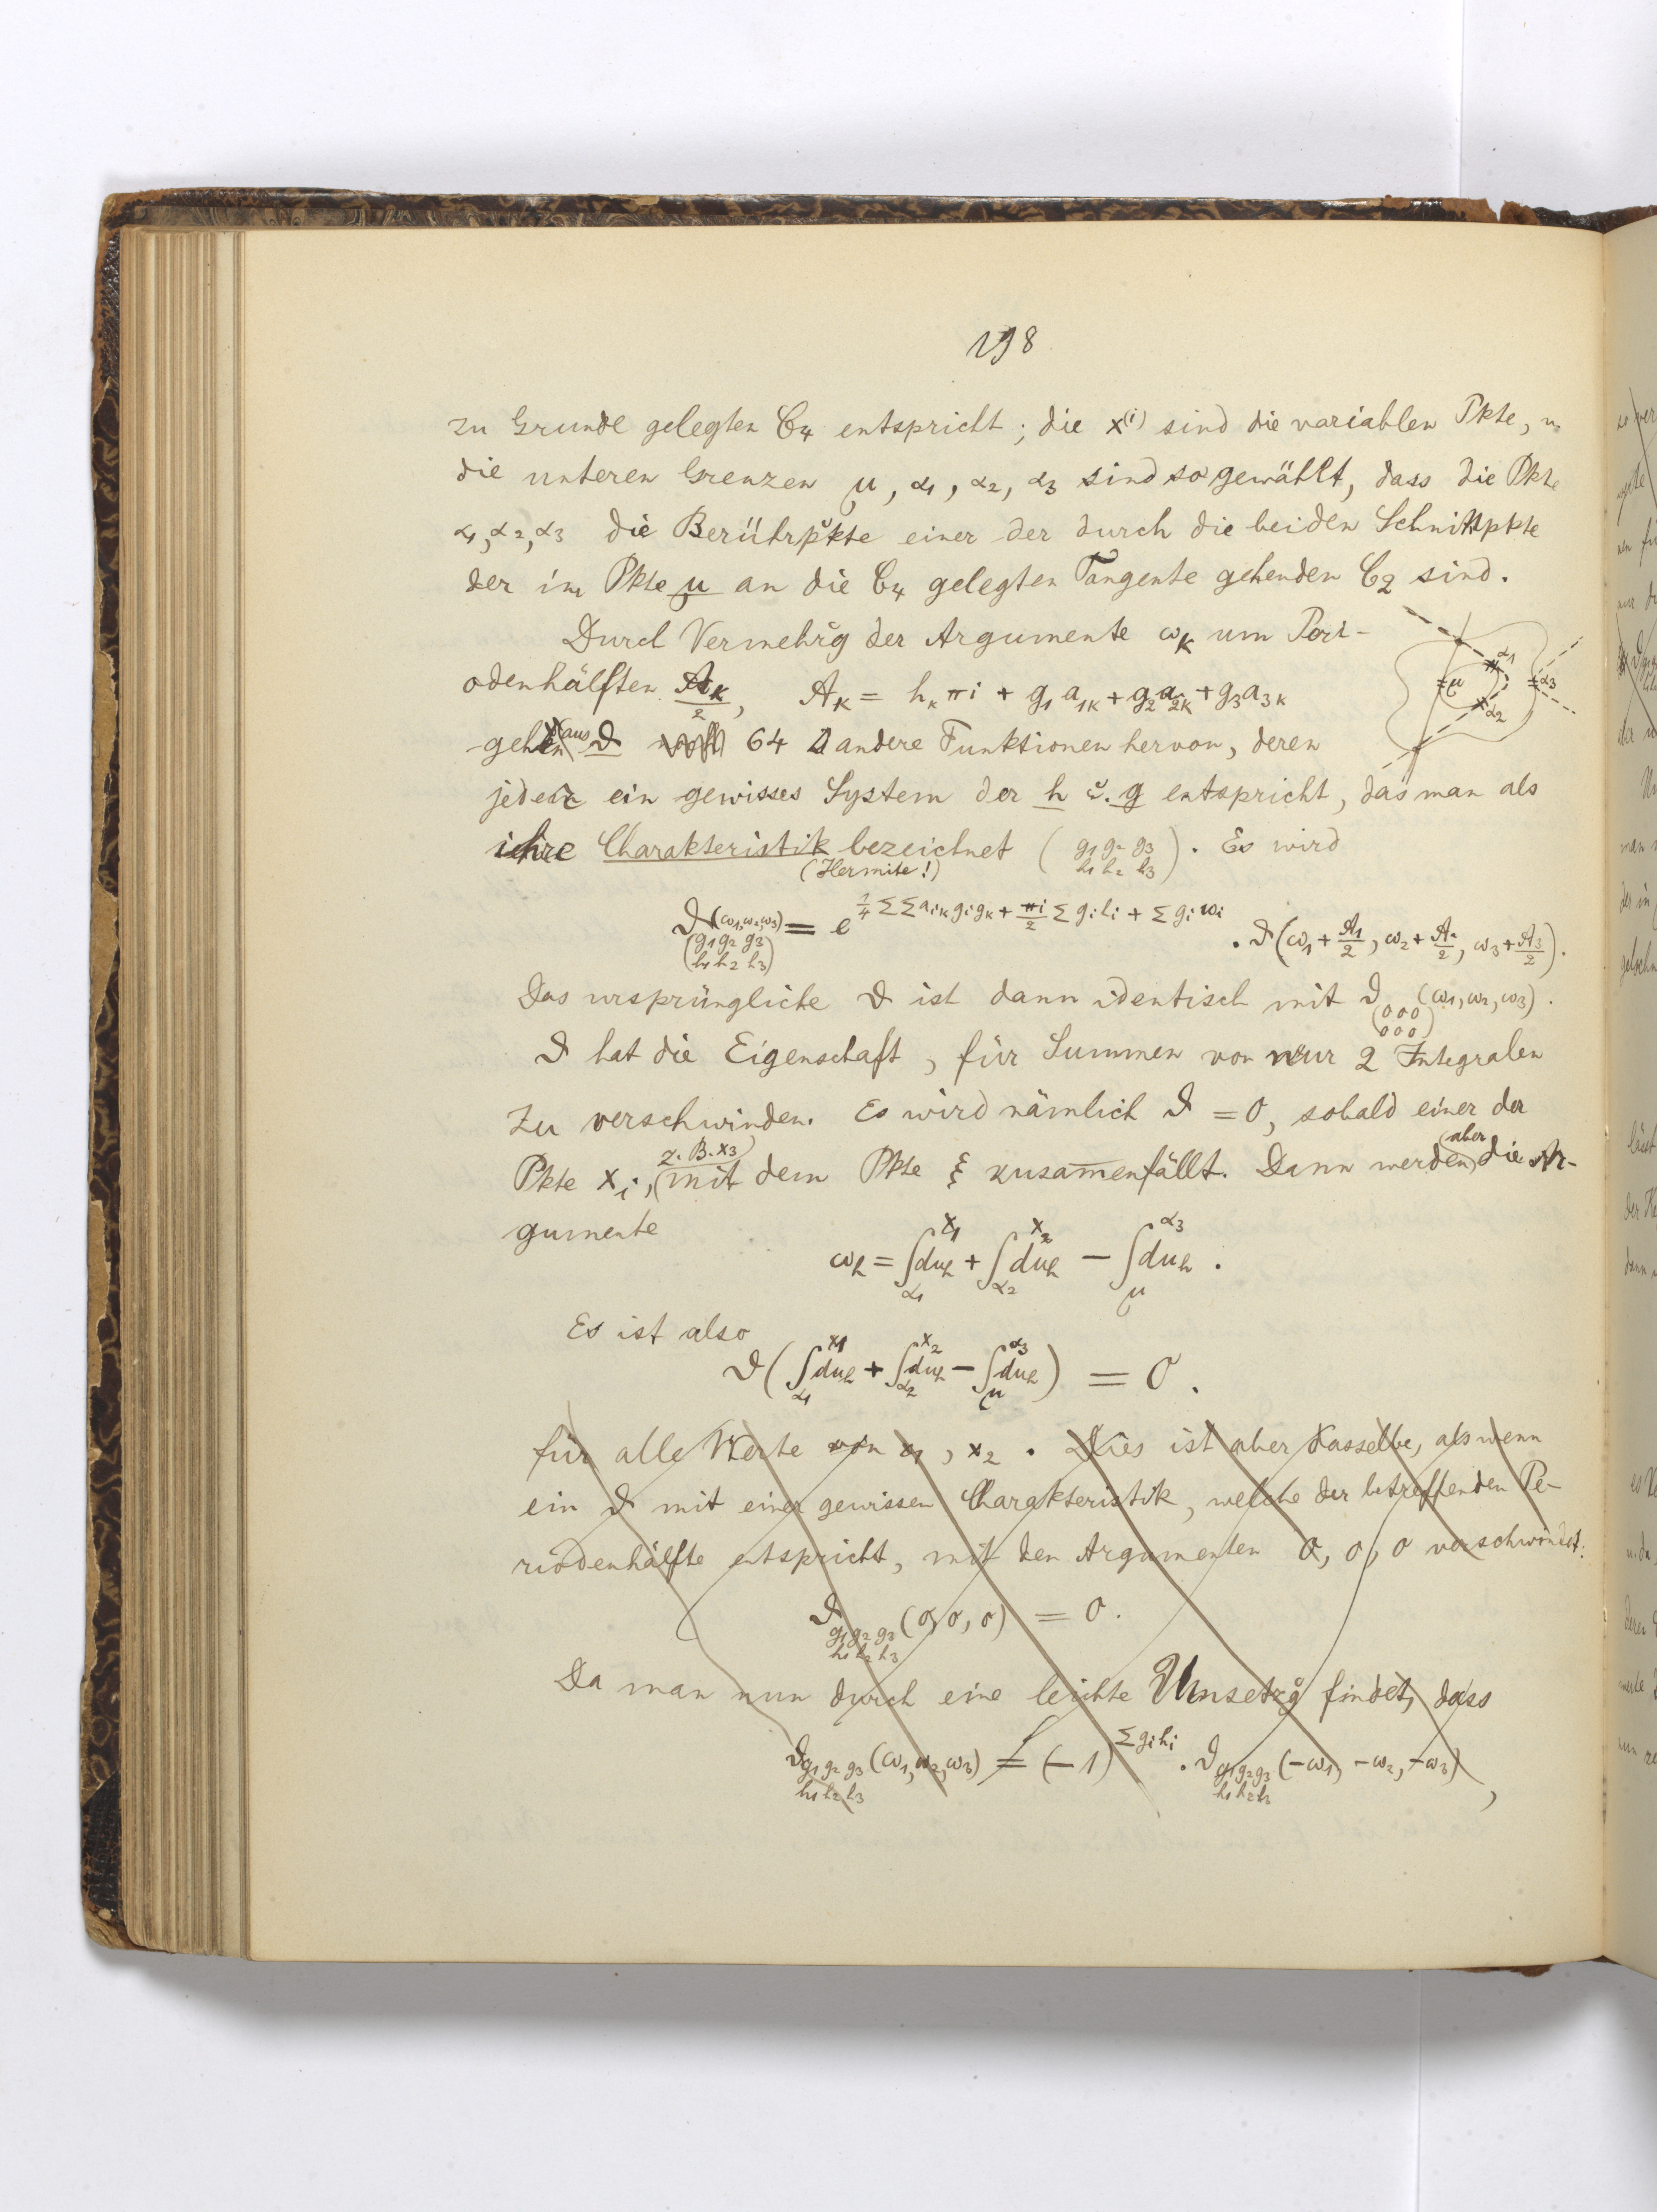 198
zu Grunde gelegten C₄ entspricht; die x⁽ⁱ⁾ sind die variablen Pkte, u.
die unteren Grenzen μ, α₁, α₂, α₃ sind so gewählt, dass die Pkte
α₁, α₂, α₃ die Berührpkte einer der durch die beiden Schnittpkte
der im Pkte μ an die C₄ gelegten Tangente gehenden C₂ sind.
Durch Vermehrg der Argumente ω_k um Peri-
odenhälften A_k/2, A_k = h_k πi + g₁a₁ₖ + g₂a₂ₖ + g₃a₃ₖ
gehen aus ϑ 64 andere Funktionen hervor, deren
jeder ein gewisses System der h u. g entspricht, das man als
ihre Charakteristik bezeichnet (g₁ g₂ g₃ / h₁ h₂ h₃). Es wird
(Hermite!)
ϑ(ω₁,ω₂,ω₃) (g₁ g₂ g₃ / h₁ h₂ h₃) = e^{¼ ΣΣ a_ik g_i g_k + πi/2 Σ g_i h_i + Σ g_i ω_i} · ϑ(ω₁ + A₁/2, ω₂ + A₂/2, ω₃ + A₃/2).
Das ursprüngliche ϑ ist dann identisch mit ϑ(000 / 000)(ω₁, ω₂, ω₃).
ϑ hat die Eigenschaft, für Summen von nur 2 Integralen
zu verschwinden. Es wird nämlich ϑ = 0, sobald einer der
Pkte x_i, z. B. x₃ mit dem Pkte ξ zusam̅enfällt. Dann werden aber die Ar-
gumente
ω_h = ∫_{α₁}^{x₁} du_h + ∫_{α₂}^{x₂} du_h − ∫_μ^{α₃} du_h.
Es ist also
ϑ(∫_{α₁}^{x₁} du_h + ∫_{α₂}^{x₂} du_h − ∫_μ^{α₃} du_h) = 0.
für alle Werte von x₁, x₂. Dies ist aber dasselbe, als wenn
ein ϑ mit einer gewissen Charakteristik, welche der betreffenden Pe-
riodenhälfte entspricht, mit den Argumenten 0, 0, 0 verschwindet:
ϑ_{g₁ g₂ g₃ / h₁ h₂ h₃}(0, 0, 0) = 0.
Da man nun durch eine leichte Umsetzg findet, dass
ϑ_{g₁ g₂ g₃ / h₁ h₂ h₃}(ω₁, ω₂, ω₃) = (−1)^{Σ g_i h_i} · ϑ_{g₁ g₂ g₃ / h₁ h₂ h₃}(−ω₁, −ω₂, −ω₃),
μ
α₁
α₂
α₃